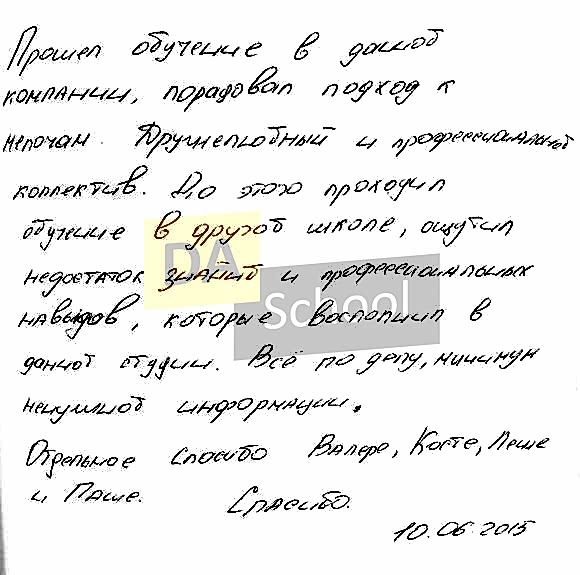 Прошел обучение в данной
компании, порадовал подход к
мелочам. Дружелюбный и профессиональный
коллектив. До этого проходил
обучение в другой школе, ощутил
недостаток знаний и профессиональных
навыков, которые восполнил в
данной студии. Всё по делу, минимум
ненужной информации.
Отдельное спасибо Валере, Косте, Леше
и Паше. Спасибо.
10.06.2015
DA
School